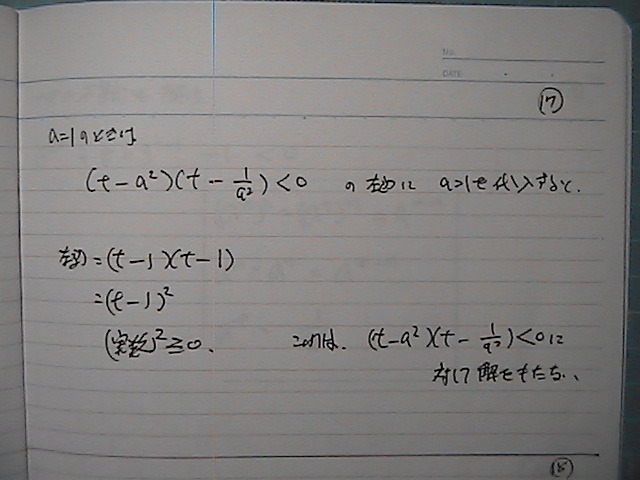 NO.
DATE
⑰
a=1のときは
(t-a²)(t-1/a²)<0 の左辺に a=1を代入すると.
左辺=(t-1)(t-1)
=(t-1)²
(実数)²≧0. これは. (t-a²)(t-1/a²)<0に
対して解をもたない、
⑱